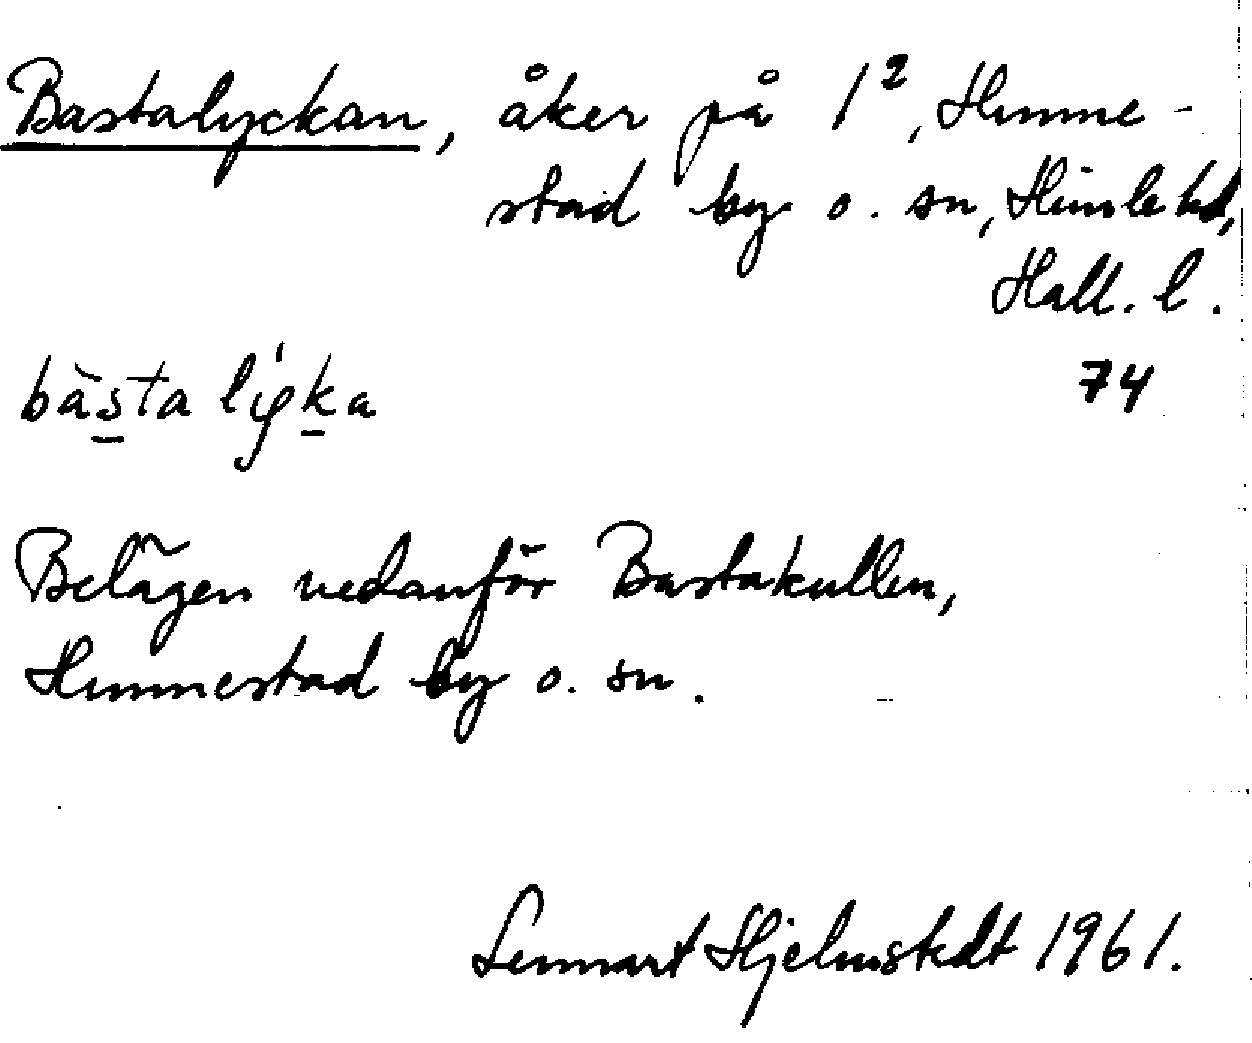 Bastalyckan, åker på 1², Hunne-
stad by o. sn, Himle hd,
Hall. l.
74
bàsta lýka
Belägen nedanför Bastakullen,
Hunnestad by o. sn.
Lennart Hjelmstedt 1961.